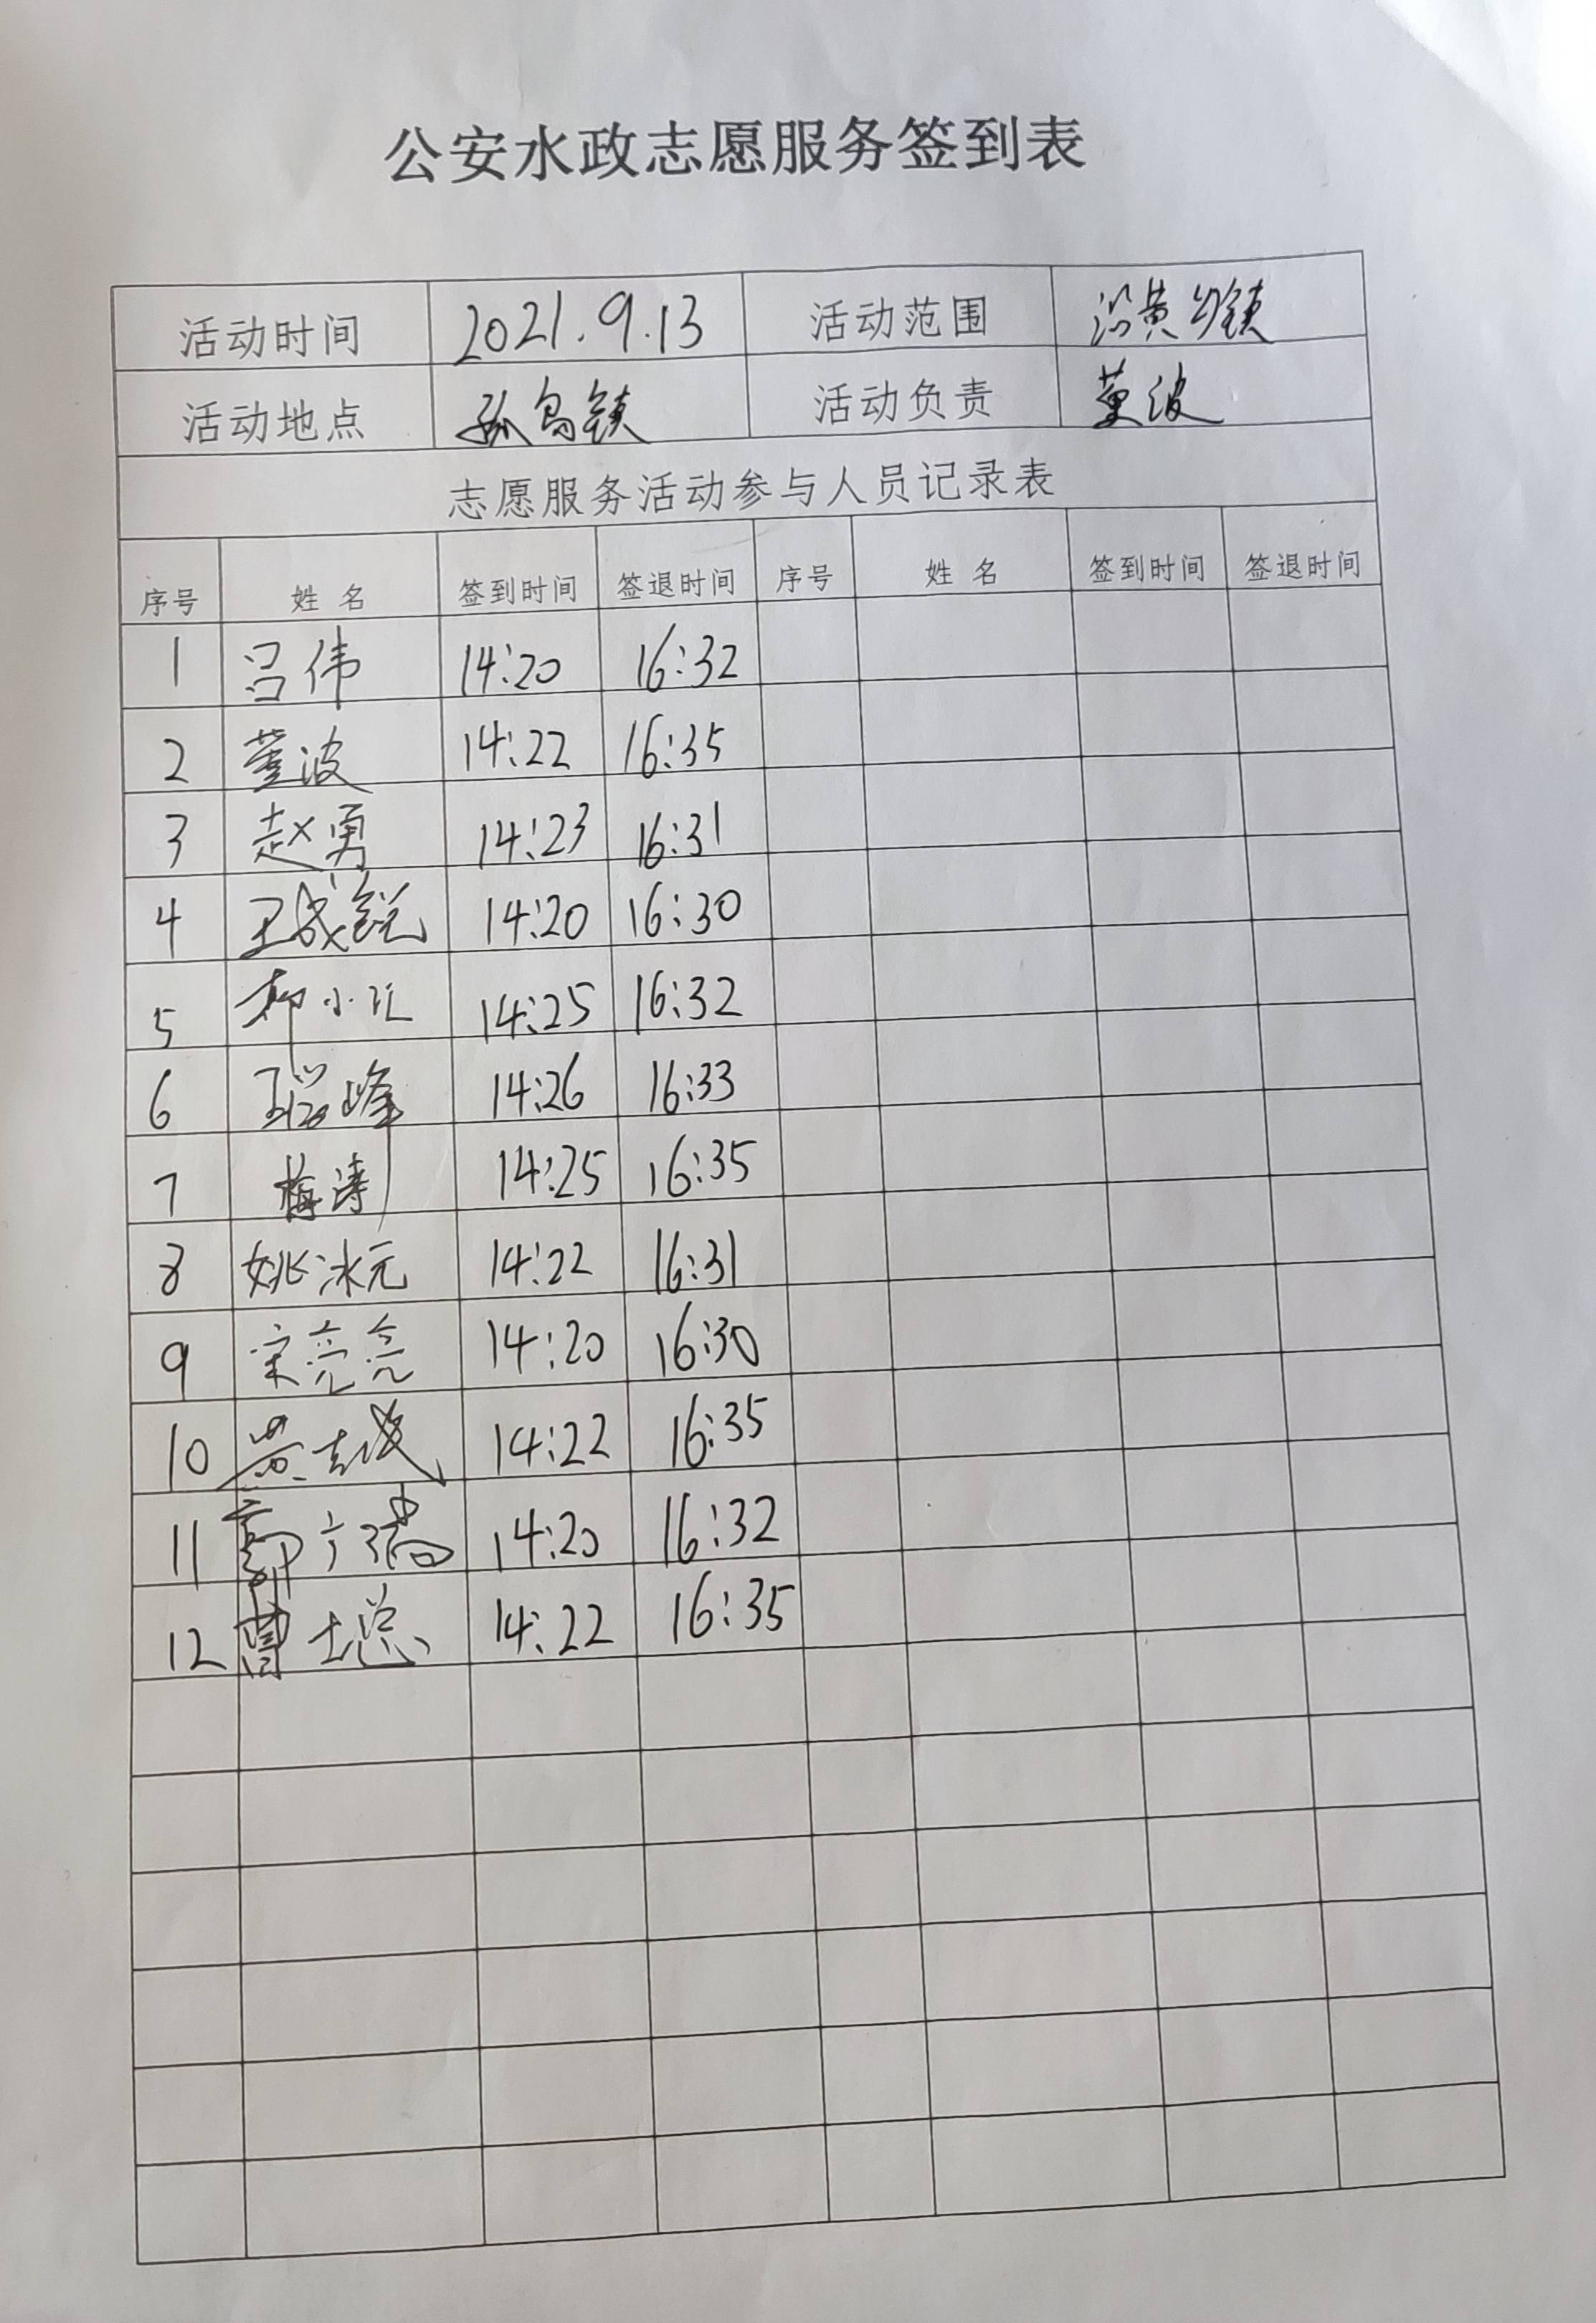 公安水政志愿服务签到表
活动时间 2021.9.13 活动范围 沿黄乡镇
活动地点 孤岛镇 活动负责 董波
志愿服务活动参与人员记录表
序号 姓名 签到时间 签退时间 序号 姓名 签到时间 签退时间
1 吕伟 14:20 16:32
2 董波 14:22 16:35
3 赵勇 14:23 16:31
4 王成锐 14:20 16:30
5 柳小汇 14:25 16:32
6 峰 14:26 16:33
7 梅涛 14:25 16:35
8 姚冰元 14:22 16:31
9 宋亮亮 14:20 16:30
10 14:22 16:35
11 郭广瑞 14:20 16:32
12 曹士总 14:22 16:35